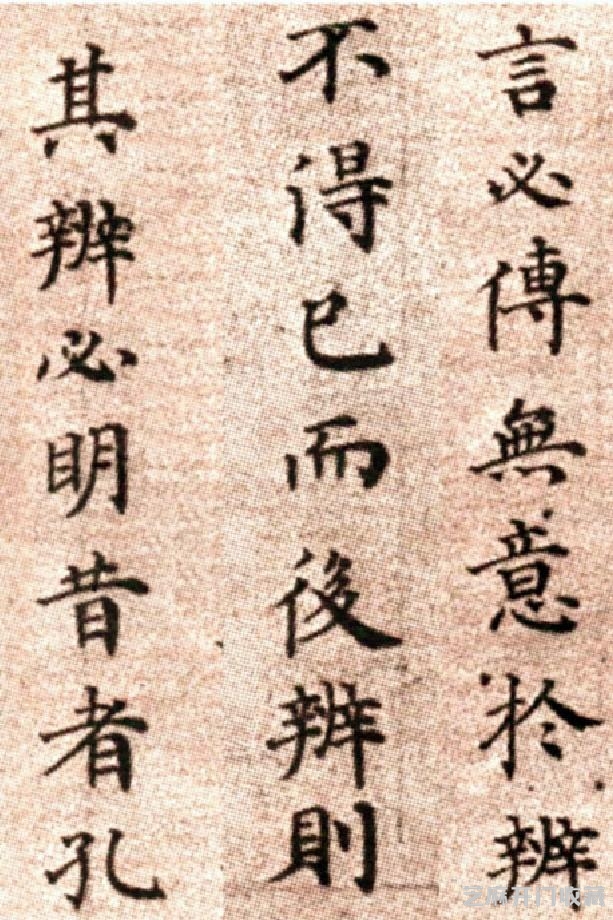 言必傳無意於辨
不得已而後辨則
其辨必明昔者孔